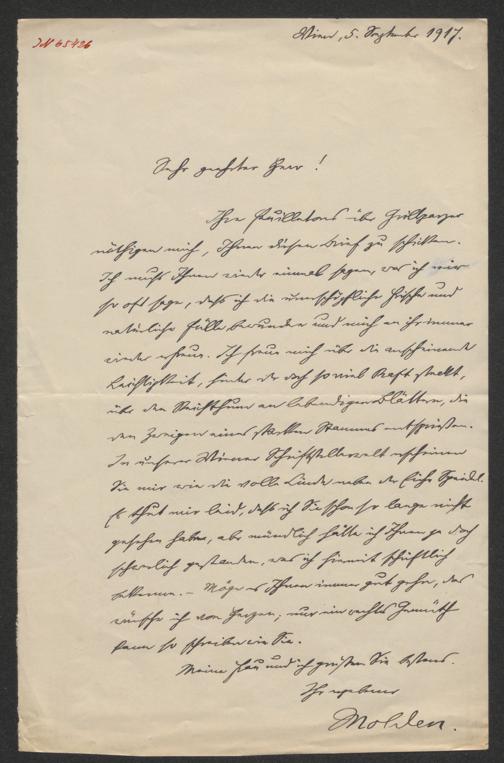 JN 65426
Wien, 5. September 1917.
Sehr geehrter Herr!
Ihre Feuilletons über Grillparzer
nöthigen mich, Ihnen diesen Brief zu schicken.
Ich muß Ihnen wieder einmal sagen, was ich mir
so oft sage, daß ich die unerschöpfliche Frische und
natürliche Fülle bewundere und mich an ihr immer
wieder erfreue. Ich freue mich über die anscheinende
Leichtigkeit, hinter der doch so viel Kraft steckt,
über den Reichthum an lebendigen Blättern, die
den Zweigen eines starken Stammes entsprießen.
In unserer Wiener Schriftstellerwelt erscheinen
Sie mir wie die volle Linde neben der Eiche Speidel.
Es thut mir leid, daß ich Sie schon so lange nicht
gesehen habe, aber mündlich hätte ich Ihnen ja doch
schwerlich gestanden, was ich hiemit schriftlich
bekenne. – Möge es Ihnen immer gut gehen, das
wünsche ich von Herzen; nur ein rechtes Gemüth
kann so schreiben wie Sie.
Meine Frau und ich grüßen Sie bestens.
Ihr ergebener
Molden.